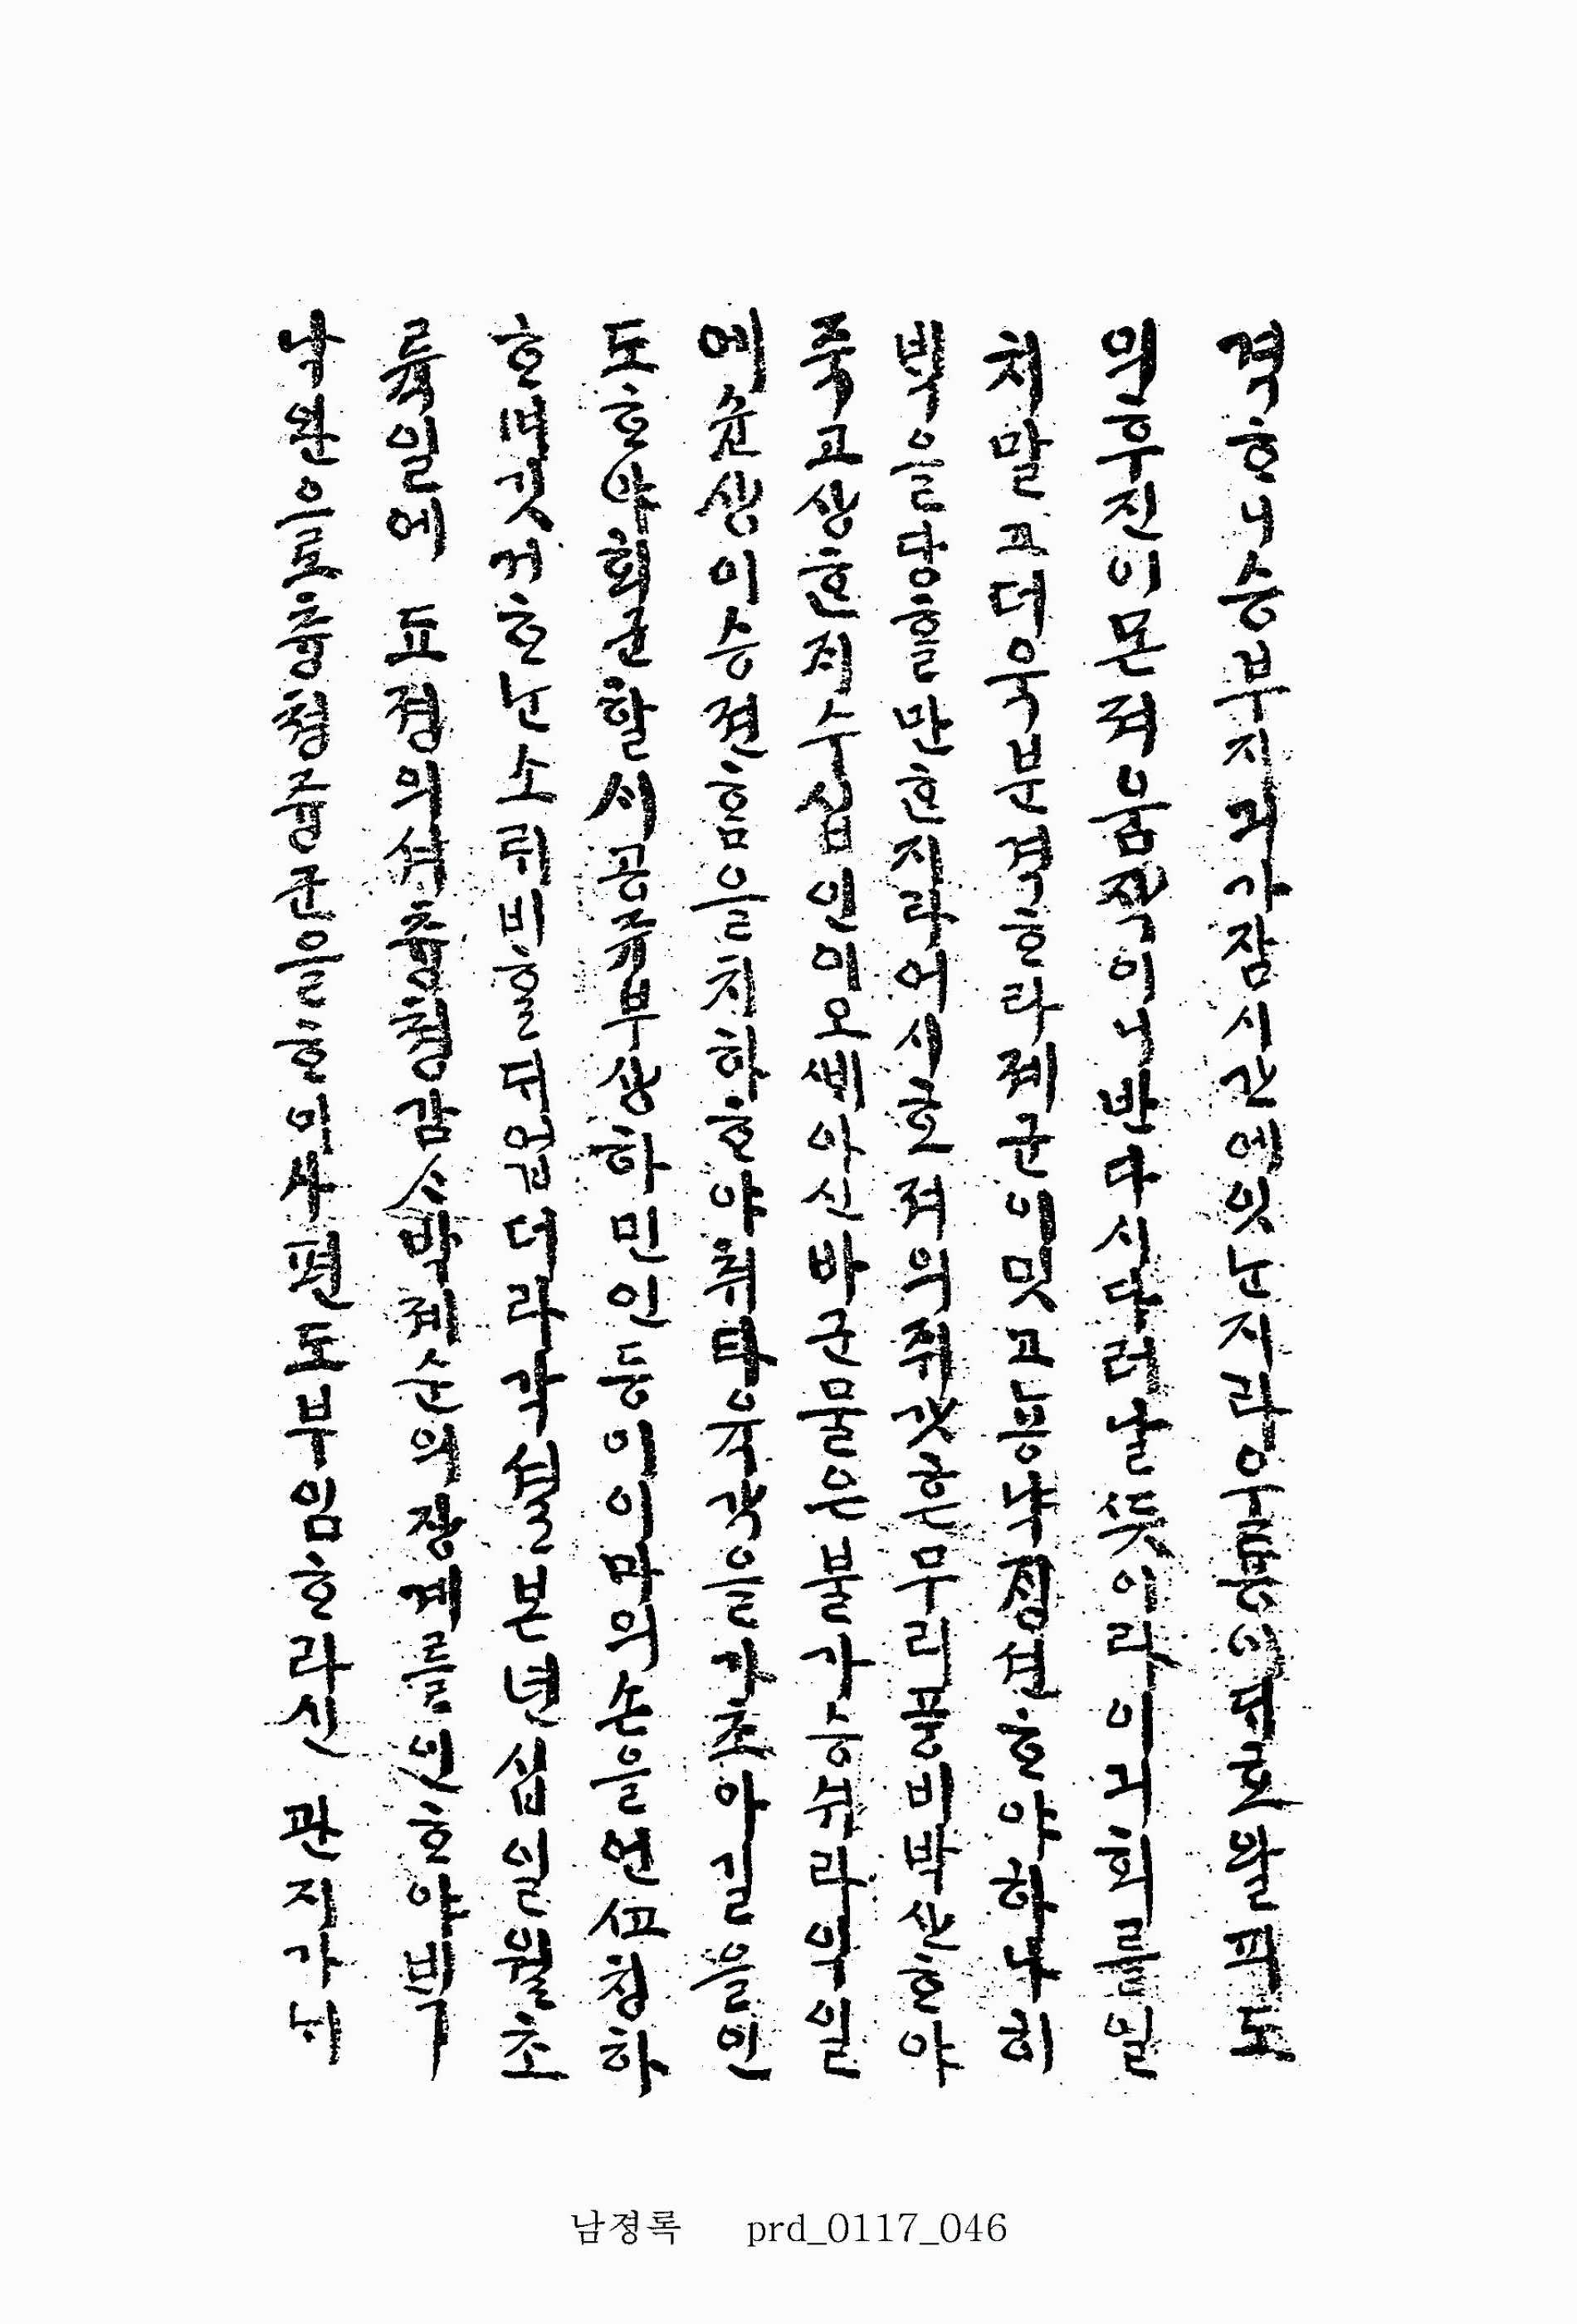 격ᄒᆞ니승부지긔가잠시간에잇ᄂᆞᆫ지라우룡이ᄃᆡ로왈픠도
의후진이몬져움ᄌᆨ이니반다시다러날ᄯᅳᆺ이라이긔회를일
치말고더욱분격ᄒᆞ라졔군이밋고롱낙졍션ᄒᆞ야하나히
ᄇᆡᆨ을당ᄒᆞᆯ만ᄒᆞᆫ지라어시호져의쥐갓흔무리풍비박산ᄒᆞ야
죽고상ᄒᆞᆫᄌᆡ수십인이오ᄲᅦ아신바군물은불가승쉬라익일
에순상이승젼ᄒᆞᆷ을치하ᄒᆞ야취ᄐᆡ육각을가초아길을인
도ᄒᆞ야회군할ᄉᆡ공쥬부상하민인등이이마의손을언ᄭᅩ칭하
ᄒᆞ며깃거ᄒᆞᄂᆞᆫ소ᄅᆡ비홀ᄃᆡ업더라각셜본년십일월초
륙일에 됴졍의셔츙쳥감ᄉᆞ박졔순의장계를인ᄒᆞ야ᄇᆡᆨ
낙완으로츙쳥즁군을ᄒᆞ이샤편도부임ᄒᆞ라신 관지가ᄂᆡ
남졍록 prd_0117_046